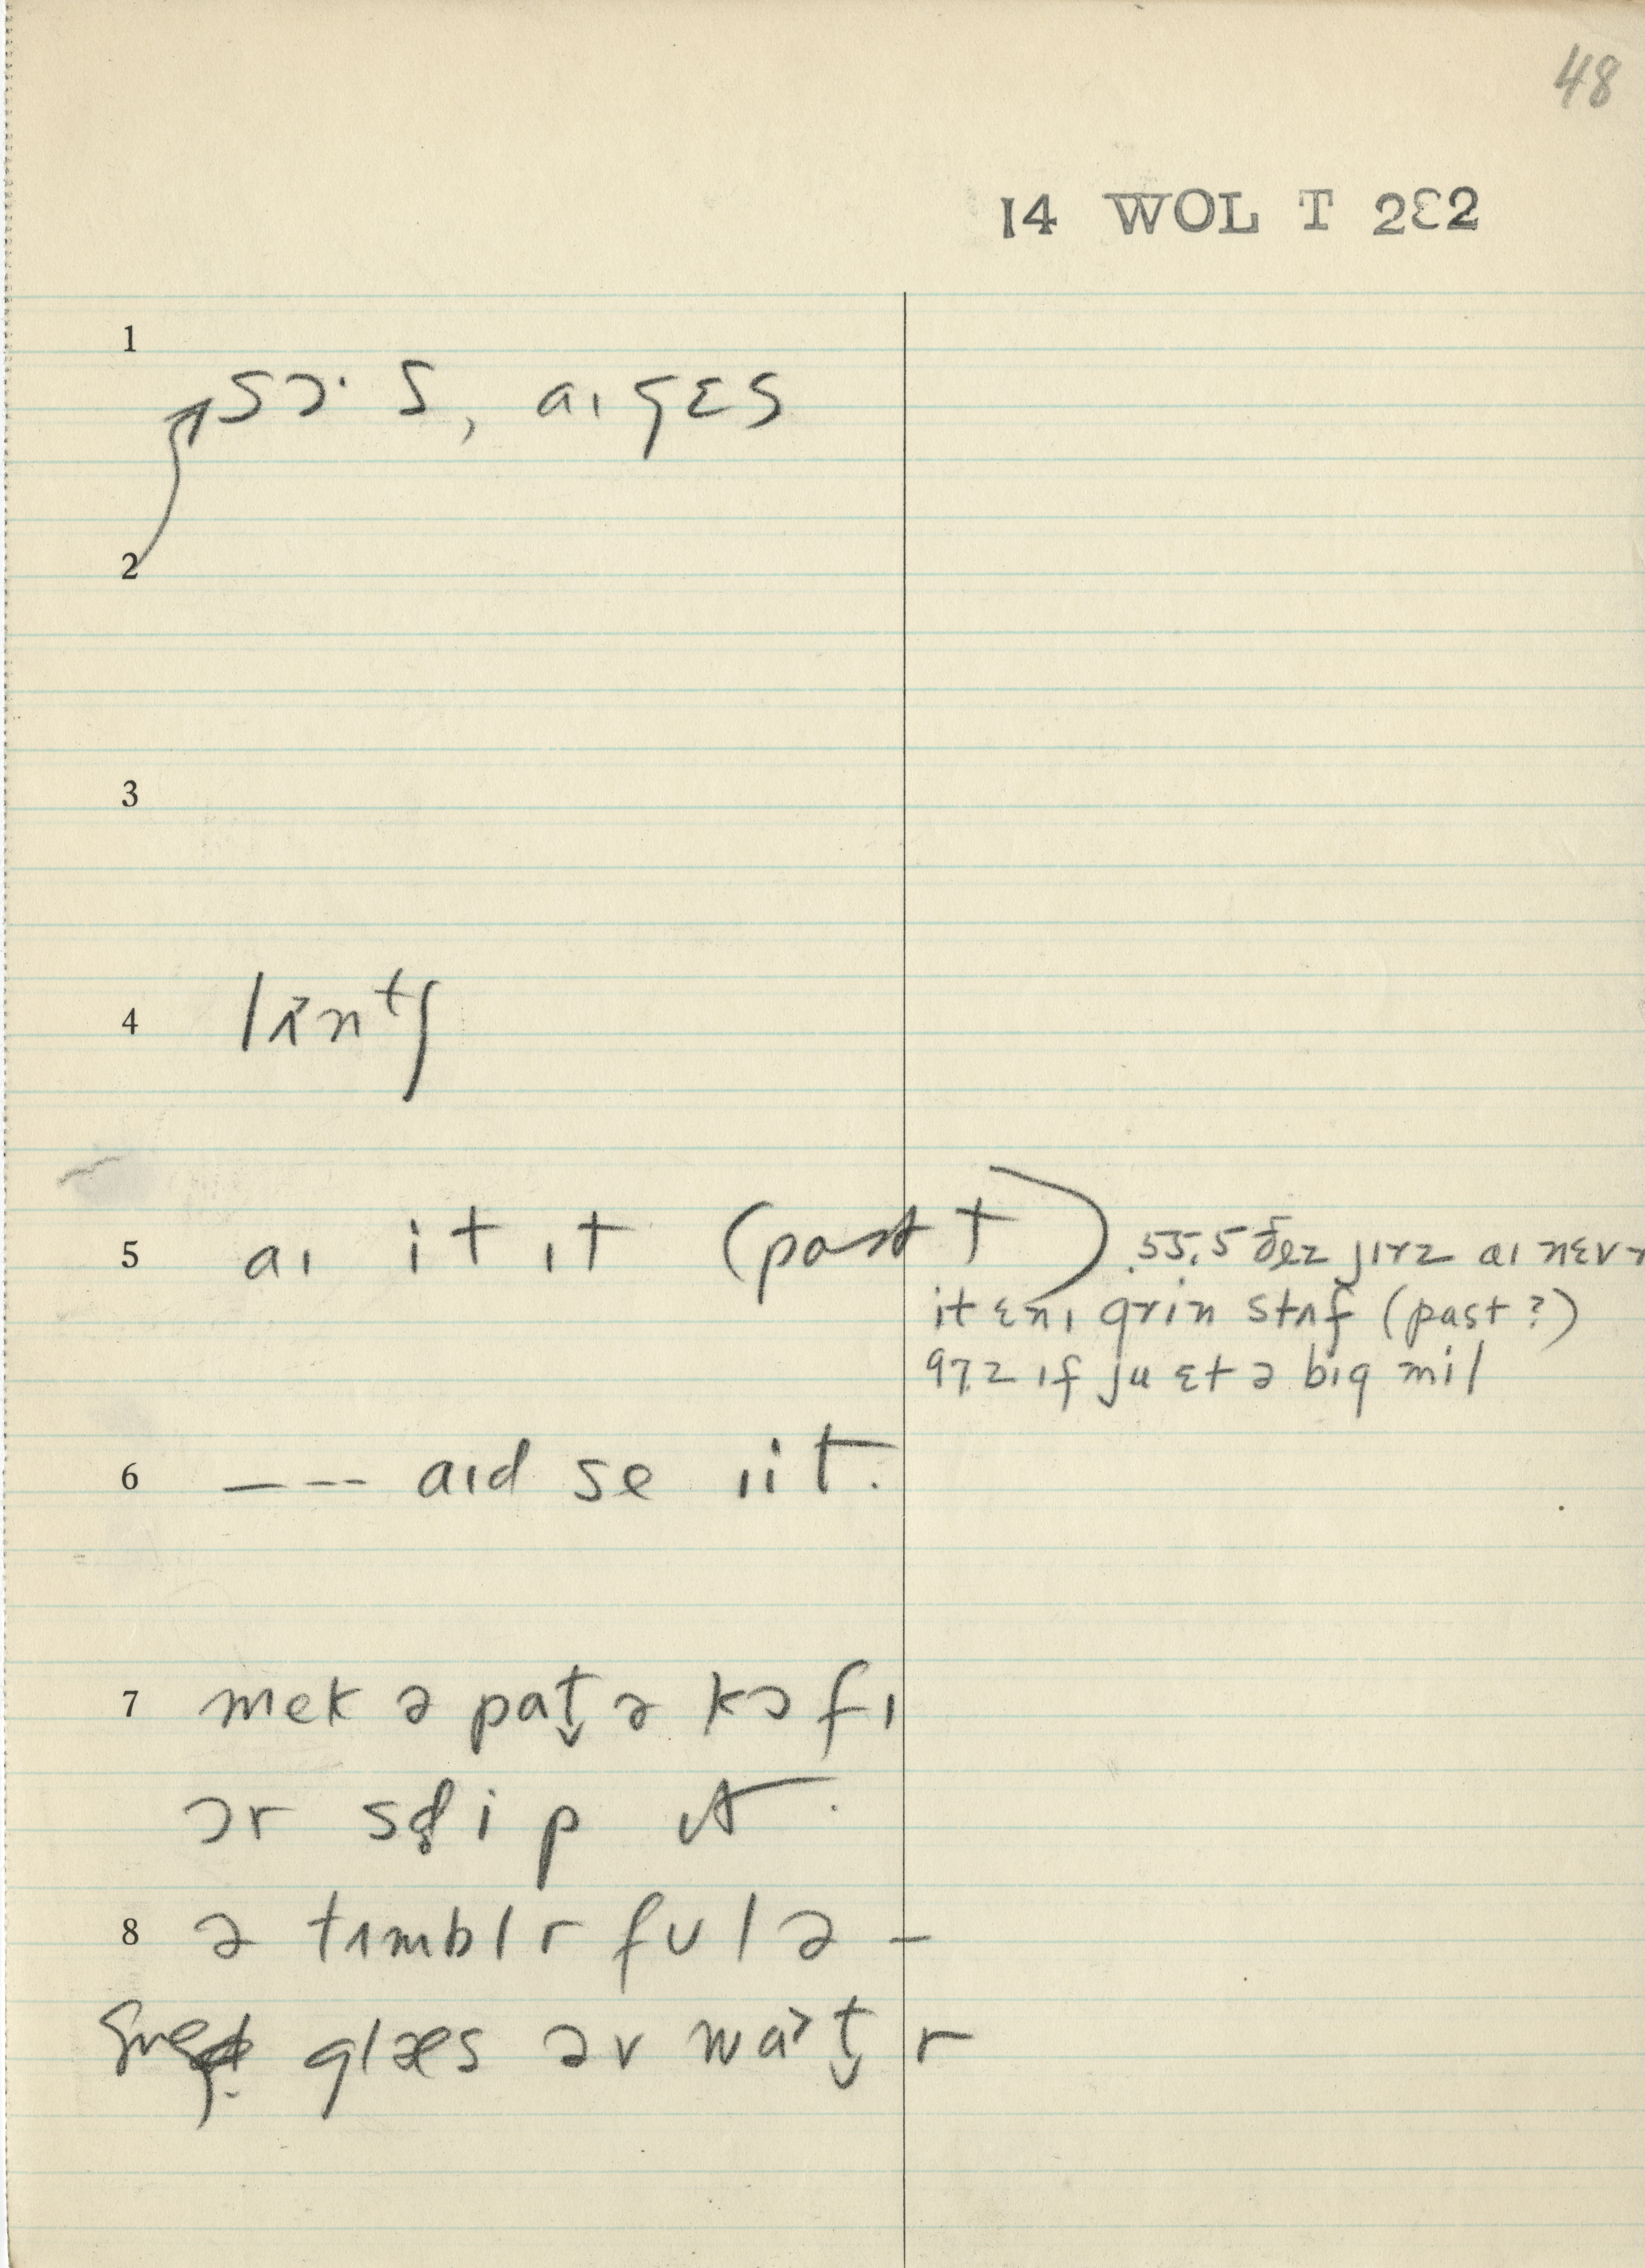 48
14 WOL T 2Ɛ2
1
sɔ· s, aɪ gɛs
2
3
4 lʌn^tʃ
5 aɪ it ɪt (past t) 55.5 ðez jɪrz aɪ nɛvr
it ɛnɪ grin stʌf (past?)
97.2 ɪf ju ɛt ə bɪg mil
6 — -- aɪd se ɪ it.
7 mek ə pat̬ ə kɔfɪ
ɔr ɪt.
8 ə tʌmblr fʊl ə –
glæs əv wa˃t̬r